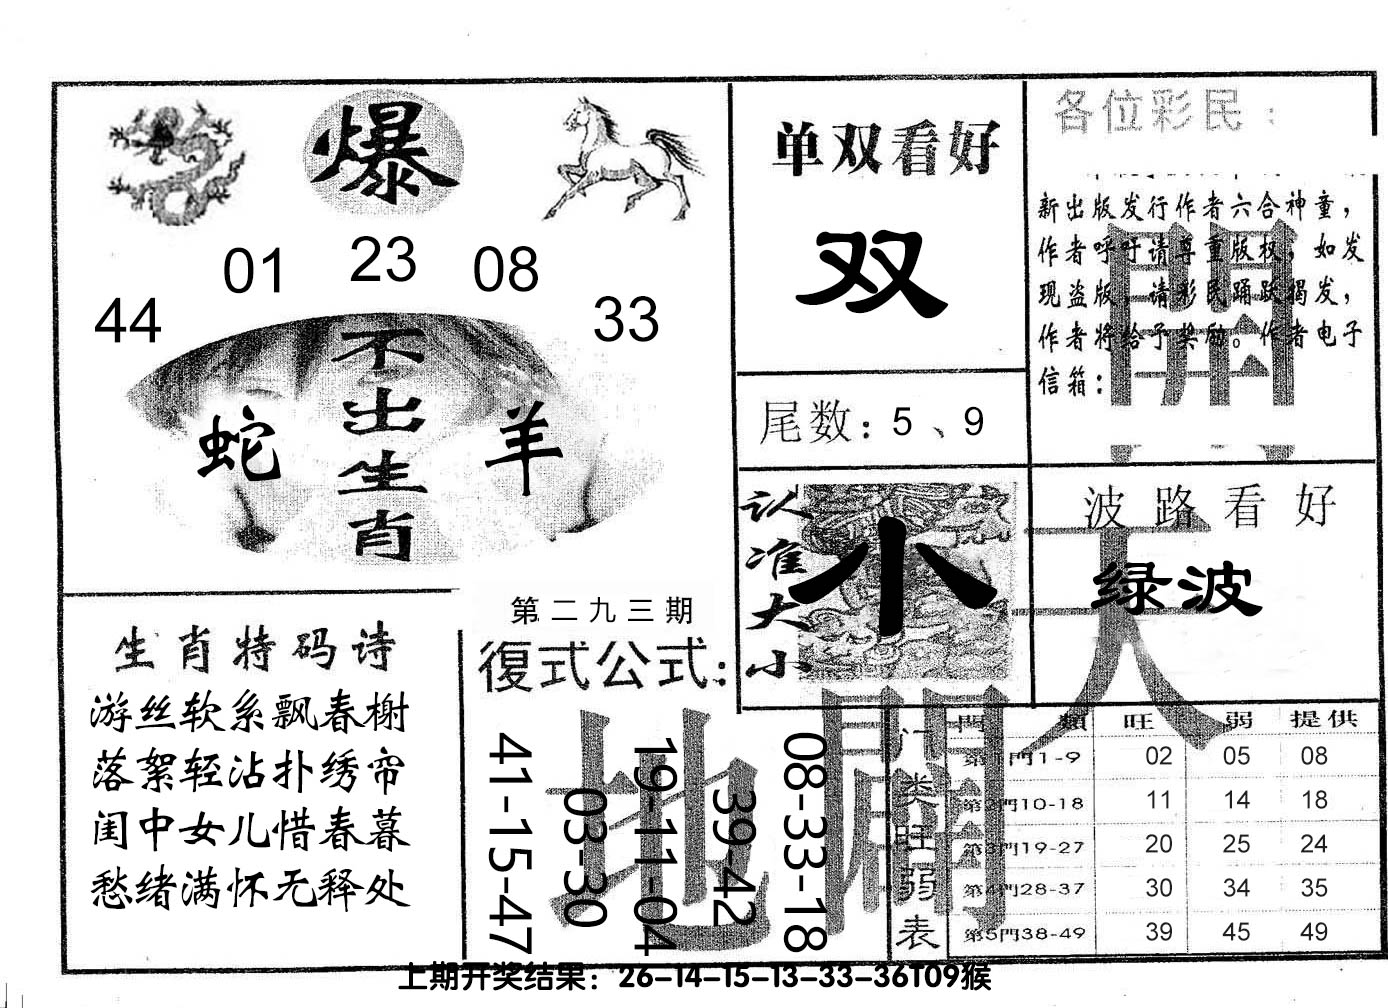 爆
44 01 23 08 33
不出生肖
蛇 羊
单双看好
双
尾数：5、9
各位彩民：
新出版发行作者六合神童，
作者呼吁请尊重版权，如发
现盗版，请彩民踊跃揭发，
作者将给予奖励。作者电子
信箱：
認准大小
小
波路看好
绿波
生肖特码诗
游丝软系飘春榭
落絮轻沾扑绣帘
闺中女儿惜春暮
愁绪满怀无释处
第二九三期
復式公式：
41-15-47
03-30
19-11-04
39-42
08-33-18
天
地
開
門类旺弱表
門類 旺 弱 提供
第1門1-9 02 05 08
第2門10-18 11 14 18
第3門19-27 20 25 24
第4門28-37 30 34 35
第5門38-49 39 45 49
上期开奖结果：26-14-15-13-33-36T09猴